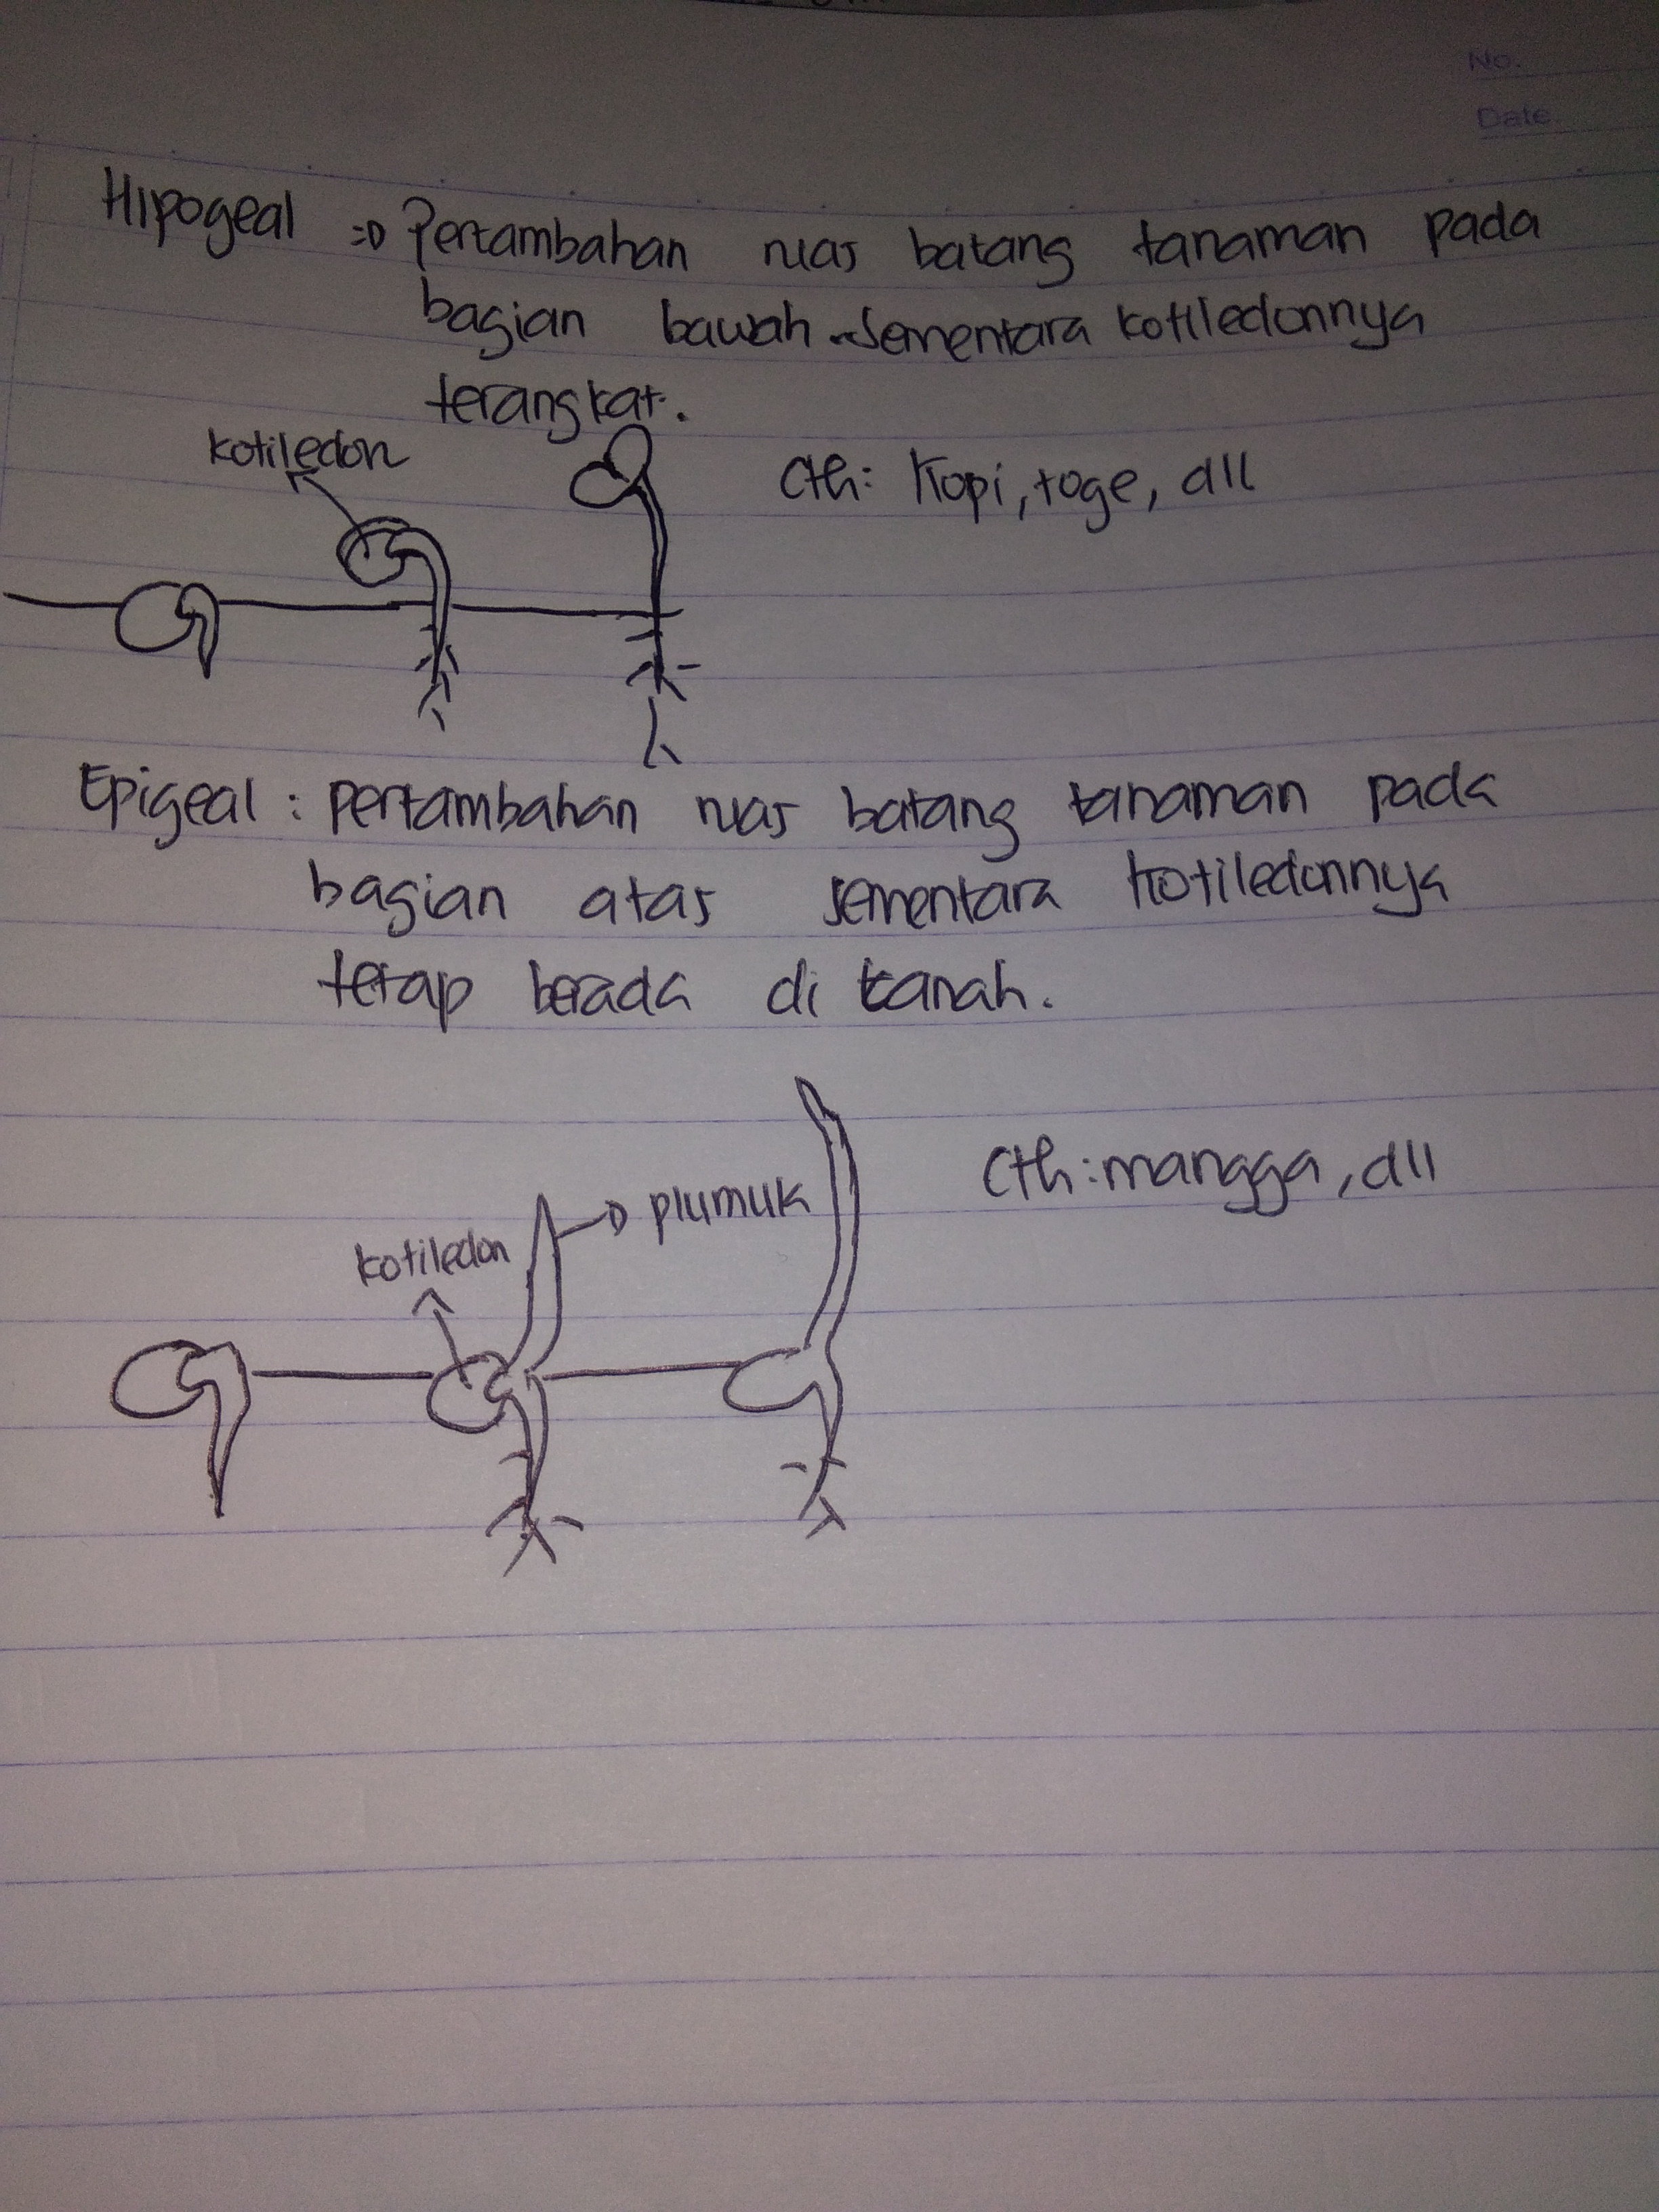 No.
Date
Hipogeal => Pertambahan ruas batang tanaman pada
bagian bawah. Sementara kotiledonnya
terangkat.
kotiledon
Cth: Kopi, toge, dll
Epigeal : pertambahan ruas batang tanaman pada
bagian atas sementara kotiledonnya
tetap berada di tanah.
Cth : mangga, dll
plumuk
kotiledon